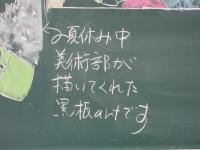 夏休み中
美術部が
描いてくれた
黒板artです